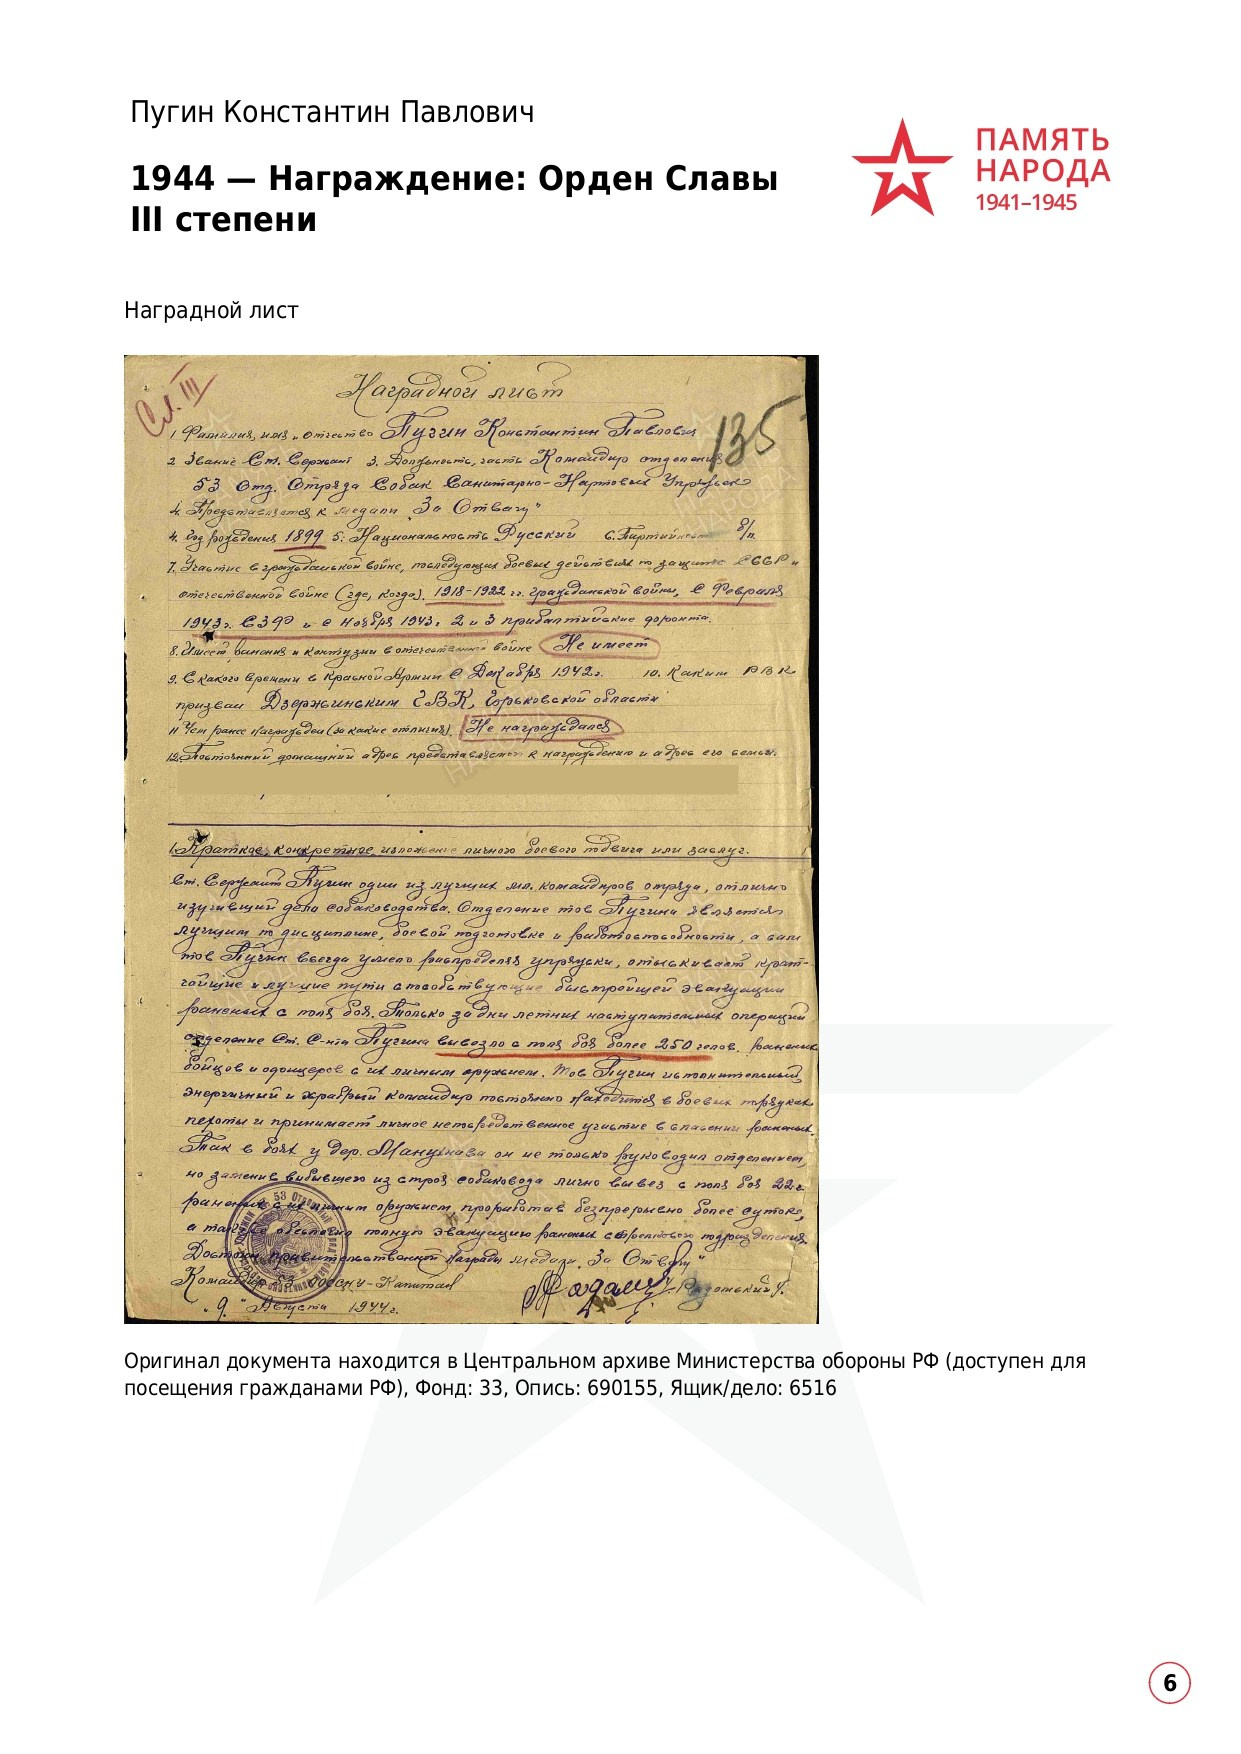 Пугин Константин Павлович
ПАМЯТЬ
НАРОДА
1941–1945
1944 — Награждение: Орден Славы
III степени
Наградной лист
Сл. III
Наградной лист
135
1 Фамилия, имя, отчество Пугин Константин Павлович
2 Звание Ст. Сержант 3. Должность, часть Командир отделения
53 Отд. Отряда Собак Санитарно-Нартовых Упряжек
4. Представляется к медали "За Отвагу"
4. Год рождения 1899 5. Национальность Русский 6. Партийность б/п.
7. Участие в гражданской войне, последующих боевых действиях по защите СССР и
отечественной войне (где, когда). 1918-1922 гг. гражданской войны, С Февраля
1943г. СЗФ и с Ноября 1943г. 2 и 3 прибалтийские фронта.
8. Имеет ранения и контузии в отечественной войне Не имеет
9. С какого времени в Красной Армии С Декабря 1942г. 10. Каким РВК
призван Дзержинским РВК, Горьковской области
11 Чем ранее награжден (за какие отличия). Не награждался
12. Постоянный домашний адрес представляемого к награждению и адрес его семьи.
1. Краткое, конкретное изложение личного боевого подвига или заслуг.
Ст. Сержант Пугин один из лучших мл. командиров отряда, отлично
изучивший дело собаководства. Отделение тов Пугина является
лучшим по дисциплине, боевой подготовке и работоспособности, а сам
тов Пугин всегда умело распределяя упряжки, отыскивает крат-
чайшие и лучшие пути способствующие быстрейшей эвакуации
раненых с поля боя. Только за дни летних наступательных операций
отделение Ст. С-нта Пугина вывезло с поля боя более 250 челов. раненых
бойцов и офицеров с их личным оружием. Тов Пугин исполнительный,
энергичный и храбрый командир постоянно находится в боевых порядках
пехоты и принимает личное непосредственное участие в спасении раненых.
Так в боях у дер. он не только руководил отделением,
но заменив выбывшего из строя собаковода лично вывез с поля боя 22х
раненых с их личным оружием, проработав безпрерывно более суток,
а также обеспечил полную эвакуацию раненых стрелкового подразделения.
Достоин правительственной награды медали "За Отвагу"
Командир 53 Капитан
"9" Августа 1944г.
Оригинал документа находится в Центральном архиве Министерства обороны РФ (доступен для
посещения гражданами РФ), Фонд: 33, Опись: 690155, Ящик/дело: 6516
6